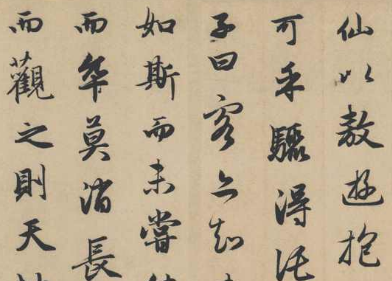 仙以敖遊抱
可乎驟得託
子曰客亦知
如斯而未嘗
而卒莫消長
而觀之則天